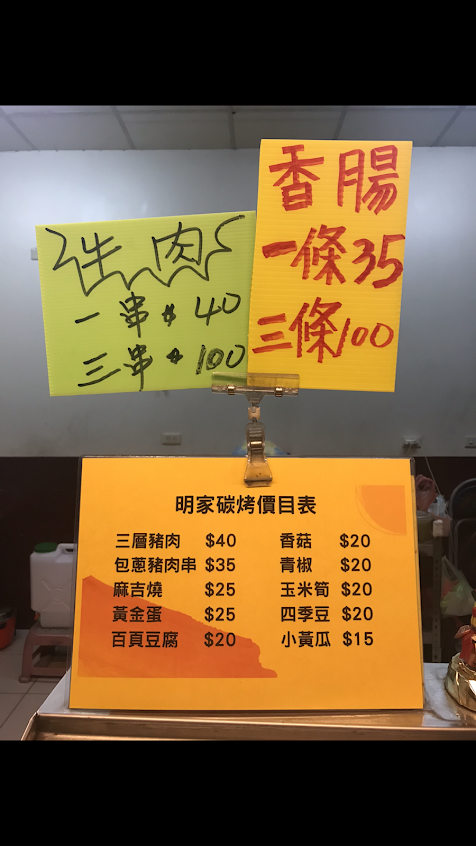 牛肉
一串$40
三串$100
香腸
一條35
三條100
明家碳烤價目表
三層豬肉 $40 香菇 $20
包蔥豬肉串 $35 青椒 $20
麻吉燒 $25 玉米筍 $20
黃金蛋 $25 四季豆 $20
百頁豆腐 $20 小黃瓜 $15